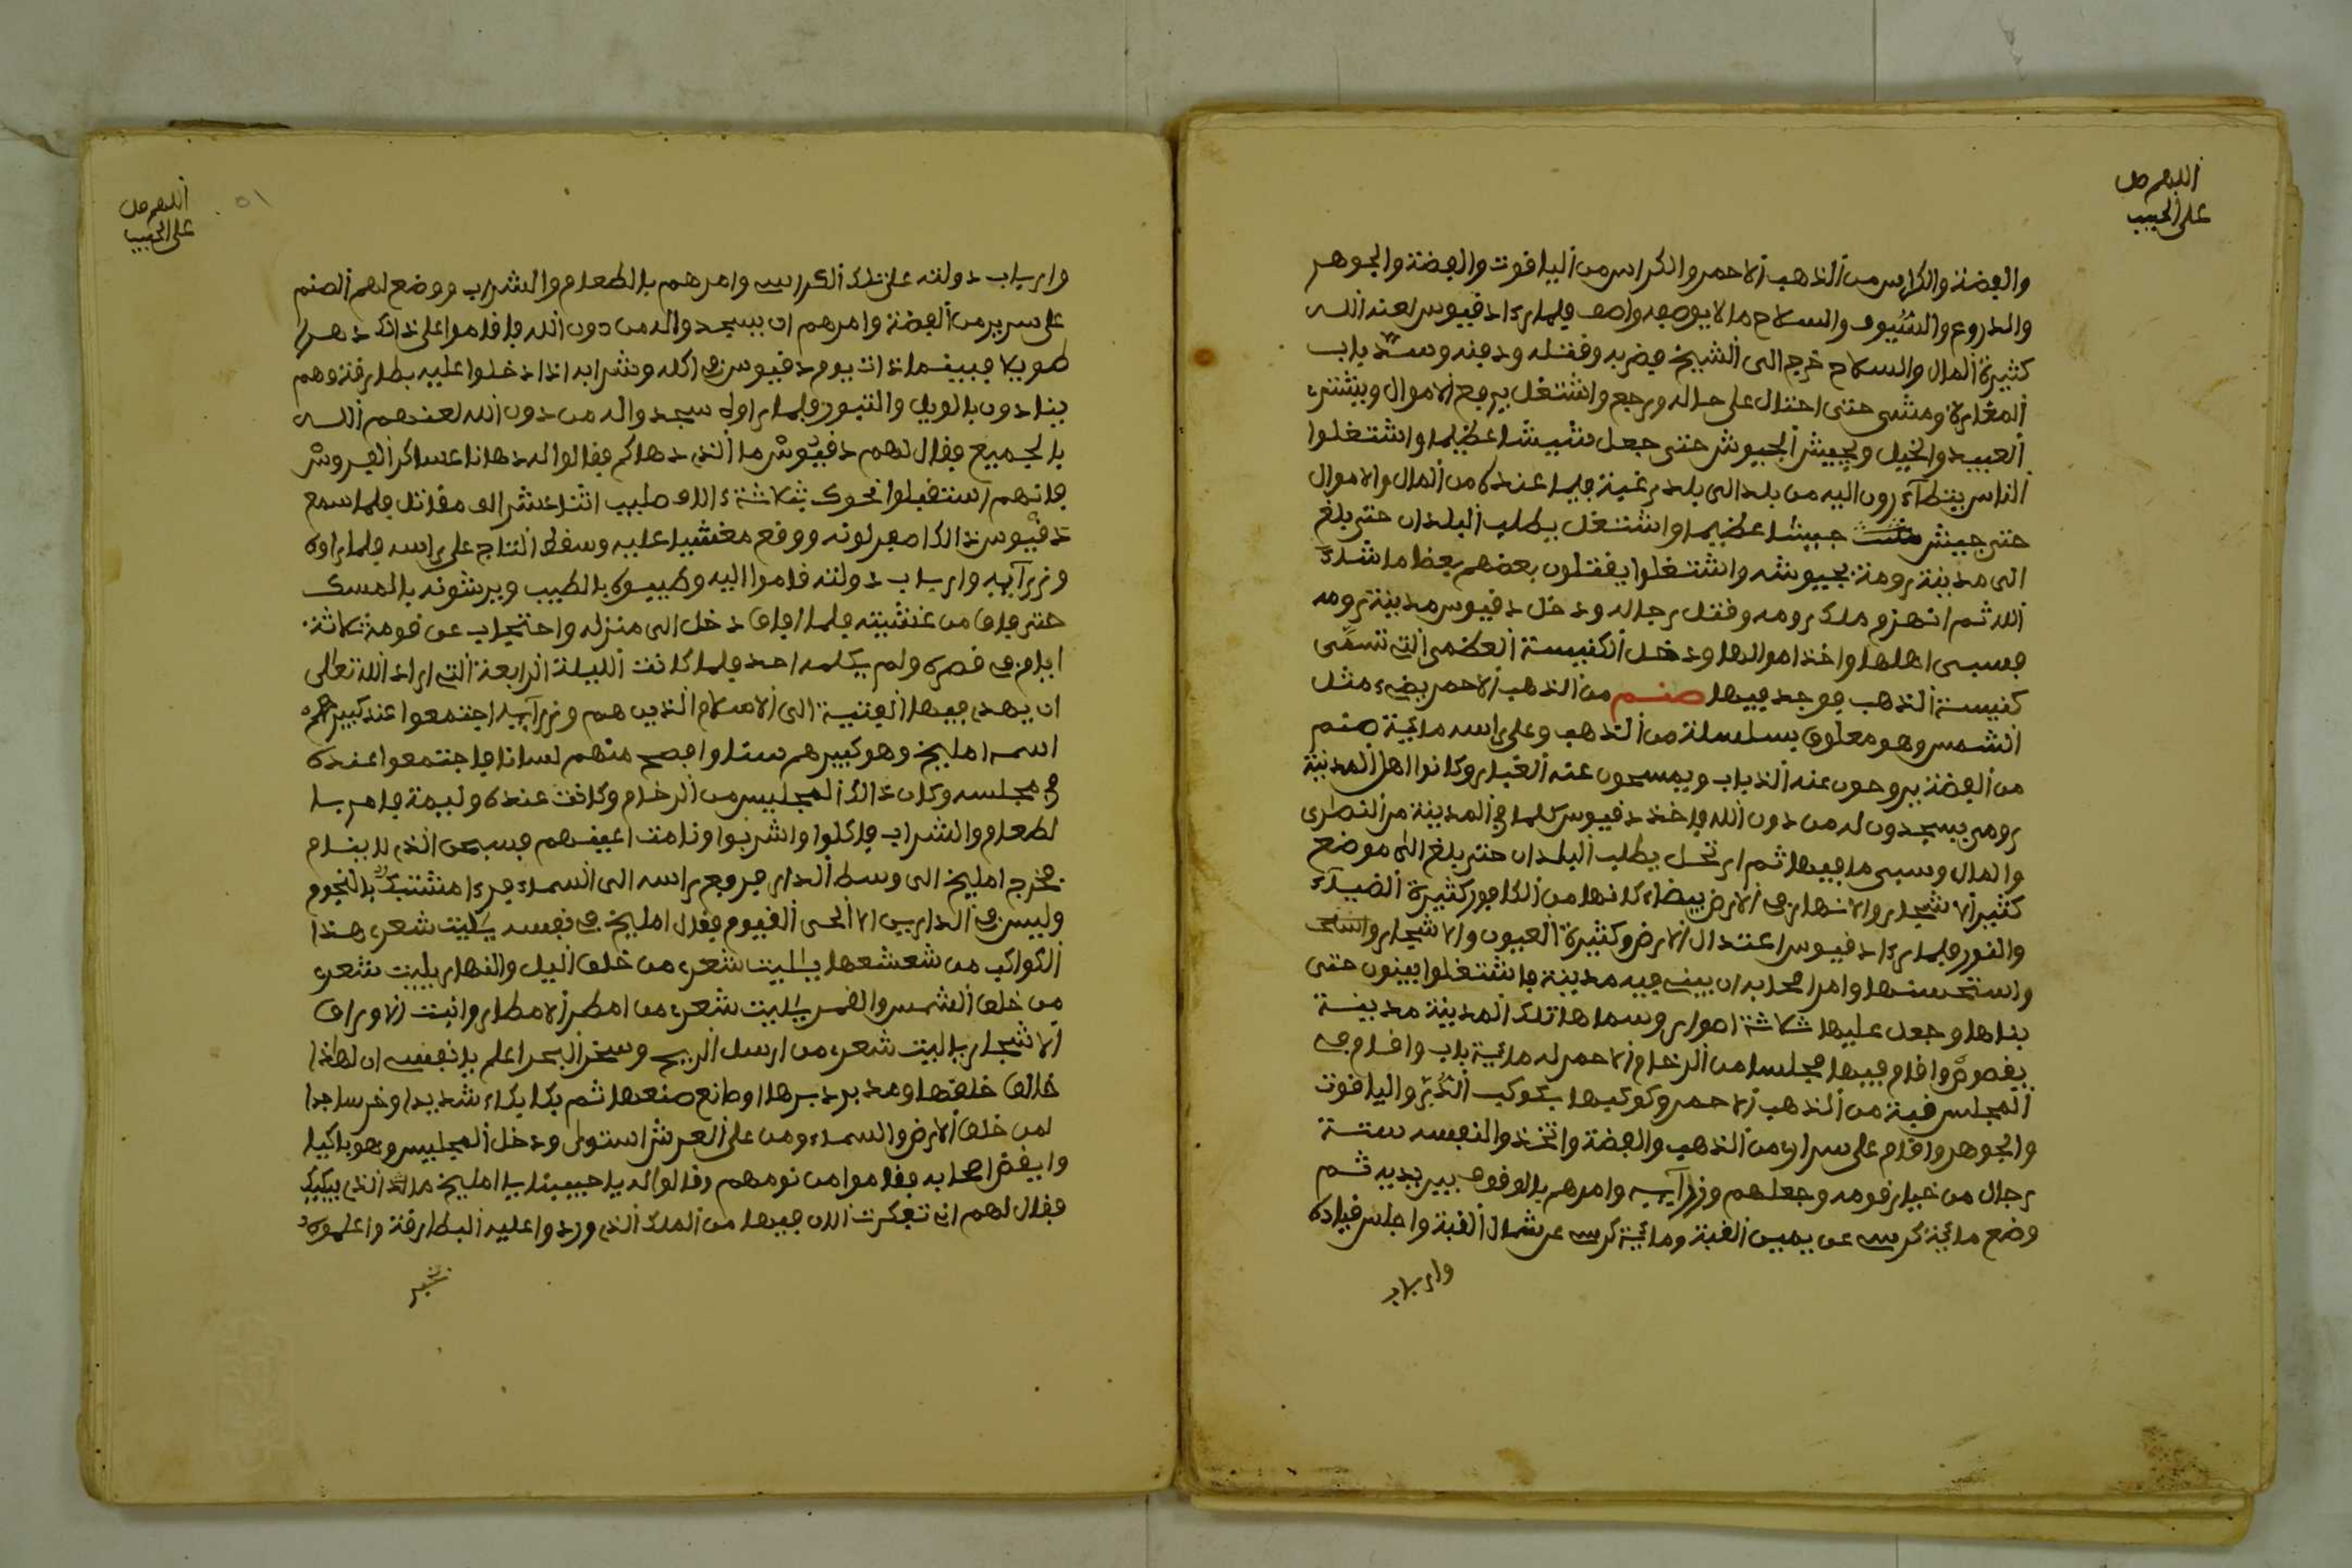 اللهم صل
على الحبيب
والفضة والكراس من الذهب الاحمر والكراس من الياقوت والفضة والجوهر
والدروع والسيوف والسلاح ما لا يوصفه واصف فلما رءا دقيوس لعنه الله
كثيرة المال والسلاح خرج الى الشيخ فضربه وقتله ودفنه وسد باب
المغارة ومشى حتى احتال على حاله ورجع واشتغل يرفع الاموال ويشتر
العبيد والخيل ويجيش الجيوش حتى جعل شيشا عظيما واشتغلوا
الناس يتطآءرون اليه من بلد الى بلد رغبة فيما عنده من المال والاموال
حتى جيش جيشا عظيما واشتغل يطلب البلدان حتى بلغ
الى مدينة رومة بجيوشه واشتغلوا يقتلون بعضهم بعظا ما شاء
الله ثم انهزم ملك رومه وقتل رجاله ودخل دقيوس مدينة رومه
فسبى اهلها واخذ اموالها ودخل الكنيسة العظمى التي تسمى
كنيسة الذهب فوجد فيها صنم من الذهب الاحمر يضيء مثل
الشمس وهو معلوق بسلسلة من الذهب وعلى راسه مائية صنم
من الفضة يروحون عنه الذباب ويمسحون عنه الغبار وكانوا اهل المدينة
رومة يسجدون له من دون الله فاخذ دقيوس كلما في المدينة من النصارى
والمال وسبى ما فيها ثم ارتحل يطلب البلدان حتى بلغ الى موضع
كثير الاشجار والانهار في الارض بيضاء كانها من الكافور كثيرة الضياء
والنور فلما رءا دقيوس اعتدال الارض وكثيرة العيون والاشجار
واستحسنها وامر اصحابه ان يبني فيه مدينة فاشتغلوا يبنون حتى
بناها وجعل عليها ثلاثة اصوار وسماها تلك المدينة مدينة
وافام فيها مجلسا من الرخام الاحمر له مائية باب وافام في
المجلس قبة من الذهب الاحمر وكوكبها بكوكب الدر والياقوت
والجوهر واقام على سرار من الذهب والفضة واتخذ والنفسه ستة
رجال من خيار قومه وجعلهم وزرآيه وامرهم بالوقوف بين يديه ثم
وضع مائية كرسي عن يمين القبة ومائية كرسي عن شمال القبة واجلس قياده
وارباب
اللهم صل
على الحبيب
٥١
وارباب دولته على تلك الكراسي وامرهم بالطعام والشراب ووضع لهم الصنم
على سرير من الفضة وامرهم ان يسجدوا له من دون الله فاقاموا على ذالك دهرا
طويلا فبينما ذات يوم دقيوس في اكله وشرابه اذا دخلوا عليه بطارقة وهم
ينادون بالويل والثبور فلما راوه سجدوا له من دون الله لعنهم الله
بالجميع فقال لهم دقيوس ما الذي دهاكم فقالوا له دهانا عساكر الفروس
فانهم استقبلوا نحوك ثلاثة ءالاف طلب اثنا عشر الف مقاتل فلما سمع
دقيوس ذالك اصفر لونه ووقع مغشيا عليه وسقط التاج على راسه فلما راوه
وزرآيه وارباب دولته قاموا اليه وطيبوه بالطيب ويرشونه بالمسك
حتى فاق من غشيته فلما افاق دخل الى منزله واحتجاب عن قومة ثلاثة
ايام في قصره ولم يكلمه احد فلما كانت الليلة الرابعة التي اراد الله تعالى
ان يهدي فيها الفتية الى الاسلام الذين هم وزرآيه اجتمعوا عند كبيرهم
اسمه امليخ وهو كبيرهم سنا وافصح منهم لسانا فاجتمعوا عنده
في مجلسه وكان ذالك المجليس من الرخام وكانت عنده وليمة فامر با
لطعام والشراب فاكلوا واشربوا ونامت اعينهم فسبحن الذي لا ينام
فخرج امليخ الى وسط الدار فرفع راسه الى السماء فرءا مشتبك بالنجوم
وليس في الدارين الا الحى القيوم فقال امليخ في نفسه ياليت شعري هذا
الكواكب من شعشعها ياليت شعري من خلق اليل والنهار ياليت شعري
من خلق الشمس والقمر ياليت شعري من امطر الامطار وانبت الاوراق
الاشجار ياليت شعري من ارسل الريح وسخر البحر اعلم يا نفسي ان لهاذا
خالق خلقها ومدبر دبرها وصانع صنعها ثم بكا بكاء شديدا وخر ساجدا
لمن خلق الارض والسماء ومن على العرش استولى ودخل المجليس وهو باكيا
وايقض اصحابه فقاموا من نومهم وقالوا له يا حبيبنا يا امليخ مالك الذي يبكيك
فقال لهم اني تفكرت الان فيها من الملك الذي وردوا عليه البطارقة واعلموه